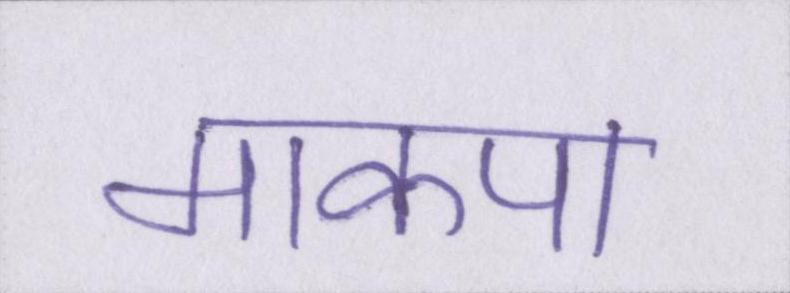 माकपा